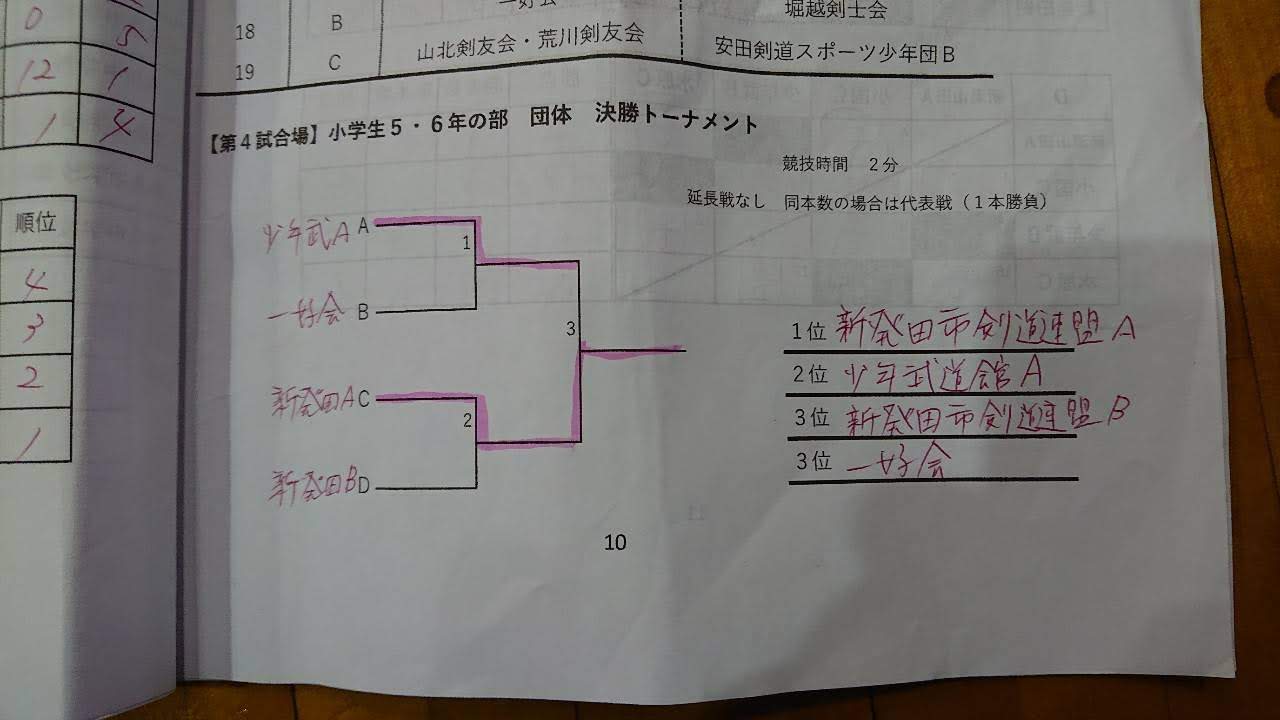 0 5
12 1
1 4
順位
4
3
2
1
18 B 一好会 堀越剣士会
19 C 山北剣友会・荒川剣友会 安田剣道スポーツ少年団B
【第4試合場】小学生5・6年の部 団体 決勝トーナメント
競技時間 2分
延長戦なし 同本数の場合は代表戦（1本勝負）
少年武A A
1
一好会 B
3
新発田A C
2
新発田B D
1位 新発田市剣道連盟A
2位 少年武道館A
3位 新発田市剣道連盟B
3位 一好会
10